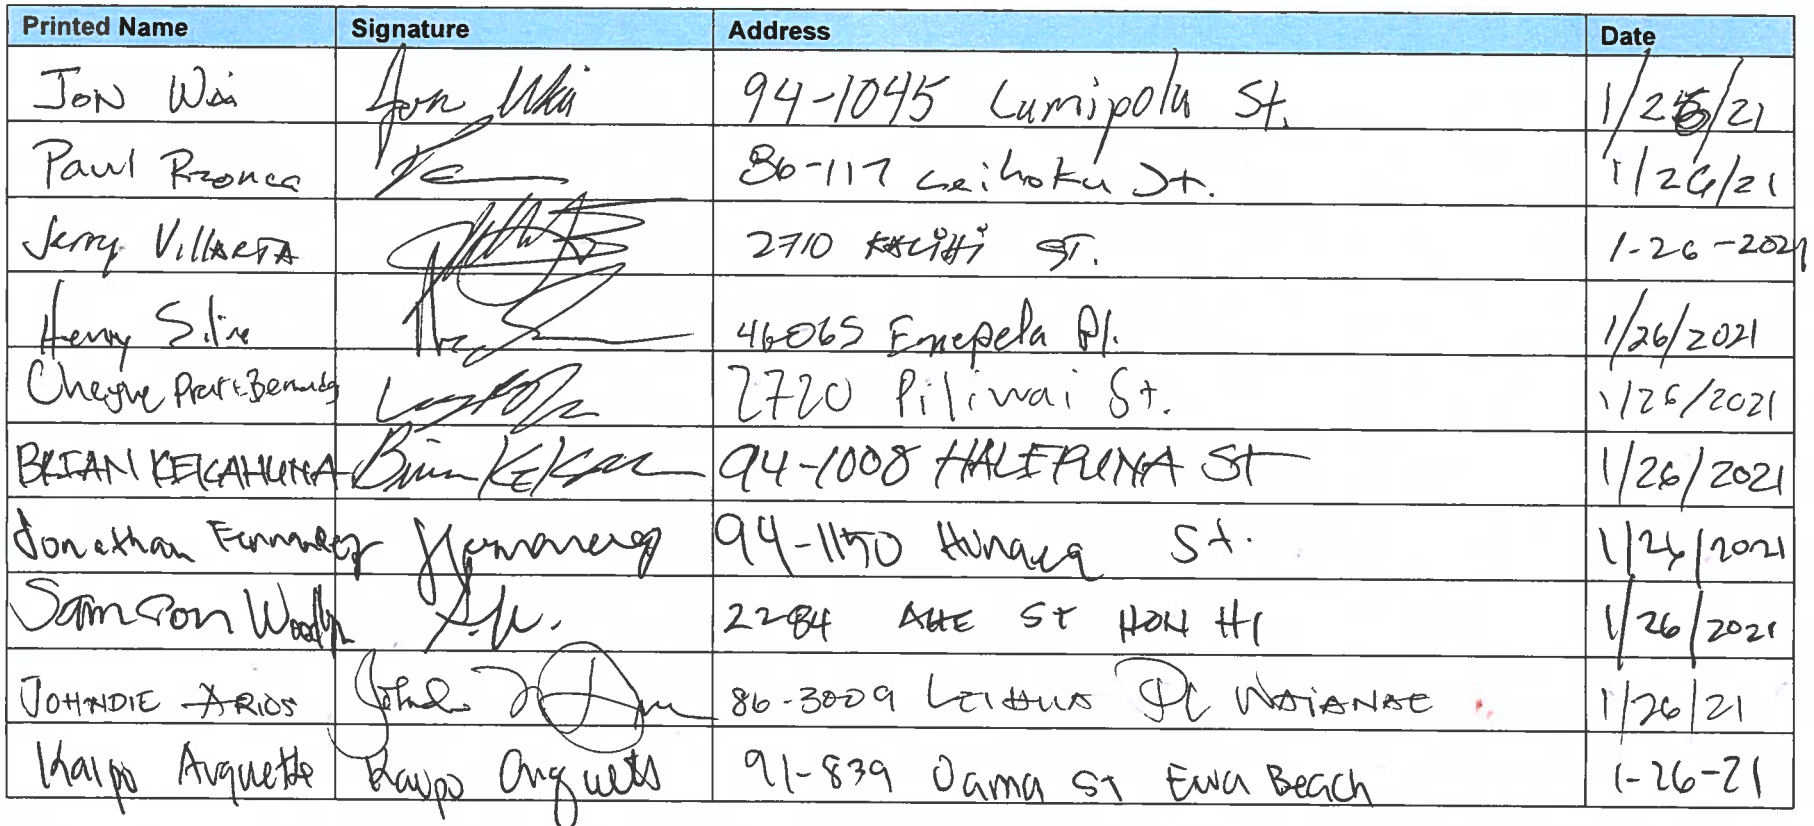 Printed Name Signature Address Date
Jon Wai Jon Wai 94-1045 Lumipolu St. 1/26/21
Paul Rzonca 86-117 Leihoku St. 1/26/21
Jerry Villarta 2710 KALIHI ST. 1-26-2021
Henry Silva 46065 Emepela Pl. 1/26/2021
Cheyne 2720 Piliwai St. 1/26/2021
BRIAN KEKAHUNA Brian 94-1008 HALEPUNA ST 1/26/2021
Jonathan Fernandez 94-1150 Hunaea St. 1/26/2021
Samson 2284 AHE ST HON HI 1/26/2021
JOHNDIE ARIOS 86-3009 LEIHUA PL WAIANAE 1/26/21
Kaipo Arquette Kaipo Arquette 91-839 Oama ST Ewa Beach 1-26-21